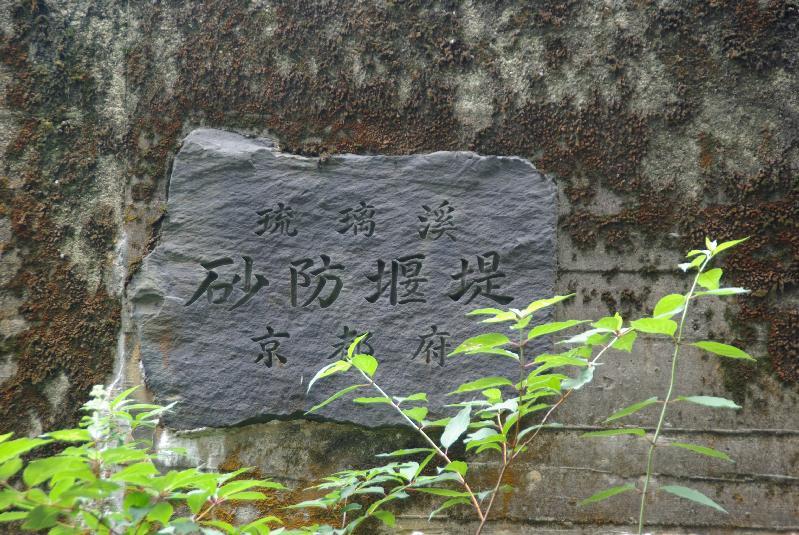 琉璃溪
砂防堰堤
京都府